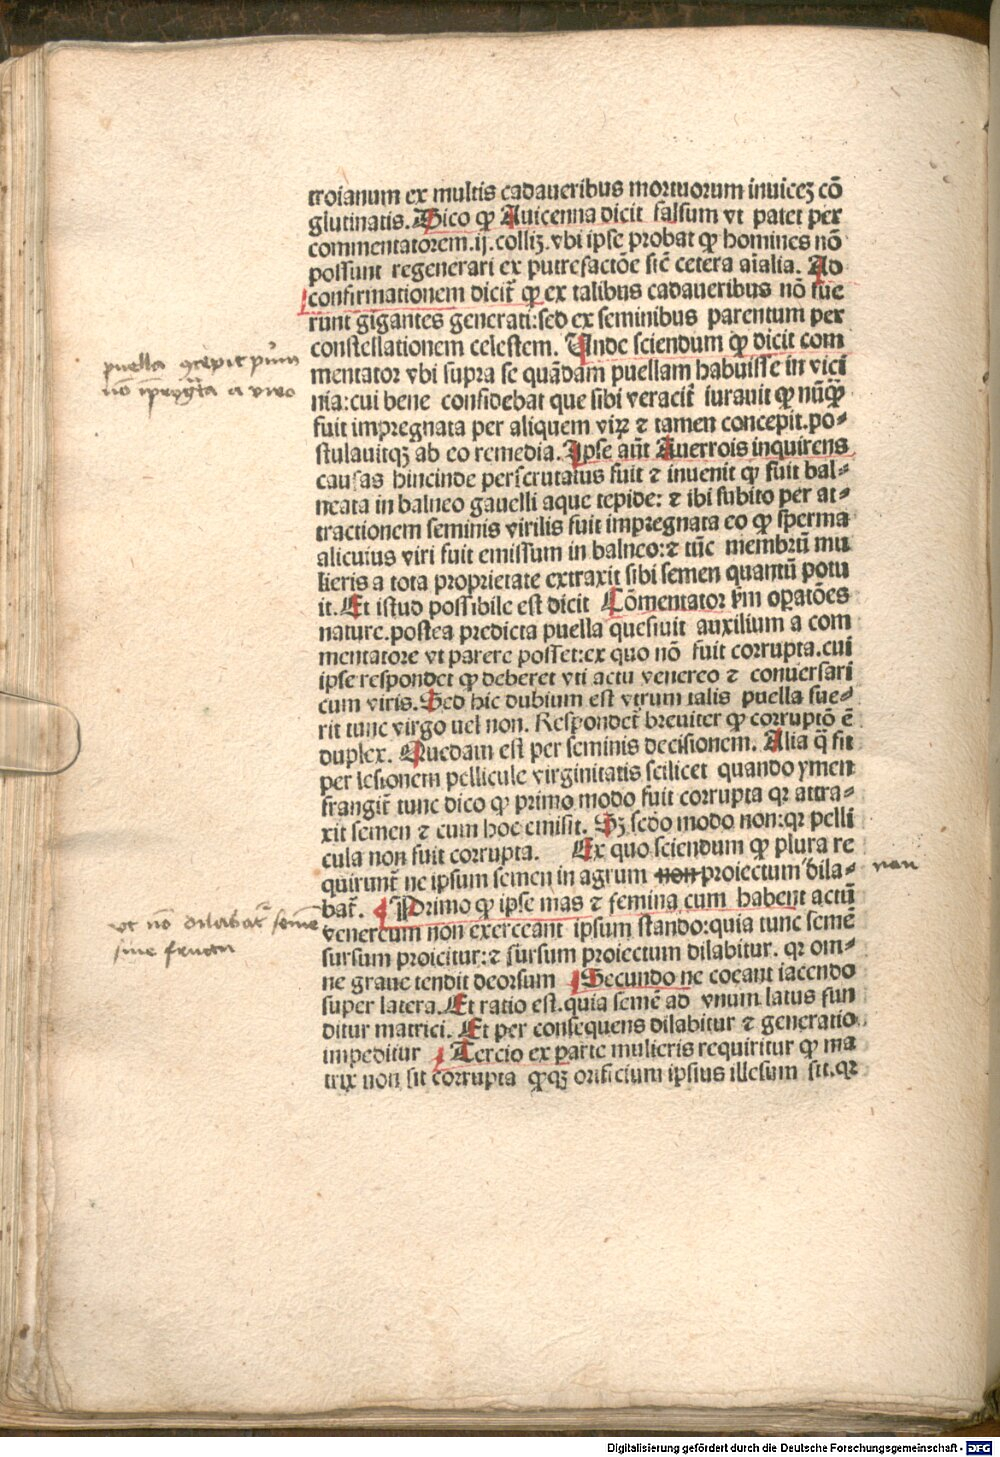 troianum ex multis cadaueribus mortuorum inuiceꝫ cō
glutinatis. Dico ꝙ Auicenna dicit falsum vt patet per
commentatorem .ij. colliꝫ. vbi ipse probat ꝙ homines nō
possunt regenerari ex putrefactōe sic̄ cetera aīalia. Ad
confirmationem dicit̄ ꝙ ex talibus cadaueribus nō fue
runt gigantes generati: sed ex seminibus parentum per
constellationem celestem. Unde sciendum ꝙ dicit com
mentator vbi supra se quādam puellam habuisse in vici
nia: cui bene confidebat que sibi veracit̄ iurauit ꝙ nūꝙ̄
fuit impregnata per aliquem viꝝ ⁊ tamen concepit. po⸗
stulauitqꝫ ab eo remedia. Ipse aūt Auerrois inquirens
causas hincinde perscrutatus fuit ⁊ inuenit ꝙ fuit bal⸗
neata in balneo gauelli aque tepide: ⁊ ibi subito per at⸗
tractionem seminis virilis fuit impregnata eo ꝙ sperma
alicuius viri fuit emissum in balneo: ⁊ tūc membrū mu
lieris a tota proprietate extraxit sibi semen quantū potu
it. Et istud possibile est dicit Cōmentator ꝑm oꝑatōes
nature. postea predicta puella quesiuit auxilium a com
mentatore vt parere posset: ex quo nō fuit corrupta. cui
ipse respondet ꝙ deberet vti actu venereo ⁊ conuersari
cum viris. Sed hic dubium est vtrum talis puella fue⸗
rit tunc virgo uel non. Respondet̄ breuiter ꝙ corruptō ē
duplex. Quedam est per seminis decisionem. Alia q̄ fit
per lesionem pellicule virginitatis scilicet quando ymen
frangit̄ tunc dico ꝙ primo modo fuit corrupta qꝛ attra⸗
xit semen ⁊ cum hoc emisit. Sꝫ scdo modo non: qꝛ pelli
cula non fuit corrupta. Ex quo sciendum ꝙ plura re
quirunt̄ ne ipsum semen in agrum non proiectum dila⸗
non
bat̄. Primo ꝙ ipse mas ⁊ femina cum habent actū
venereum non exerceant ipsum stando: quia tunc semē
sursum proicitur: ⁊ sursum proiectum dilabitur. qꝛ om⸗
ne graue tendit deorsum Secundo ne coeant iacendo
super latera. Et ratio est. quia semē ad vnum latus fun
ditur matrici. Et per consequens dilabitur ⁊ generatio
impeditur Tercio ex parte mulieris requiritur ꝙ ma
trix non sit corrupta ꝙqꝫ orificium ipsius illesum sit. qꝛ
puella ꝯcepit
nō a viro
vt nō dilabat̄ semē
sine fructu
Digitalisierung gefördert durch die Deutsche Forschungsgemeinschaft - DFG